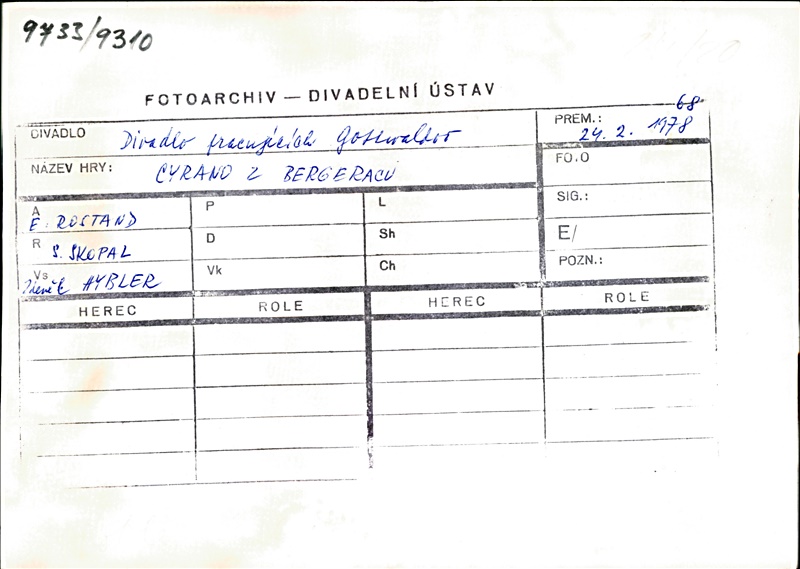 9733/9310
FOTOARCHIV — DIVADELNÍ ÚSTAV
68
DIVADLO Divadlo pracujících Gottwaldov
PREM.: 24. 2. 1978
NÁZEV HRY: CYRANO Z BERGERACU
FO.O
A E. ROSTAND
P
L
SIG.:
R S. SKOPAL
D
Sh
E/
Vs Zdeněk HYBLER
Vk
Ch
POZN.:
HEREC ROLE HEREC ROLE